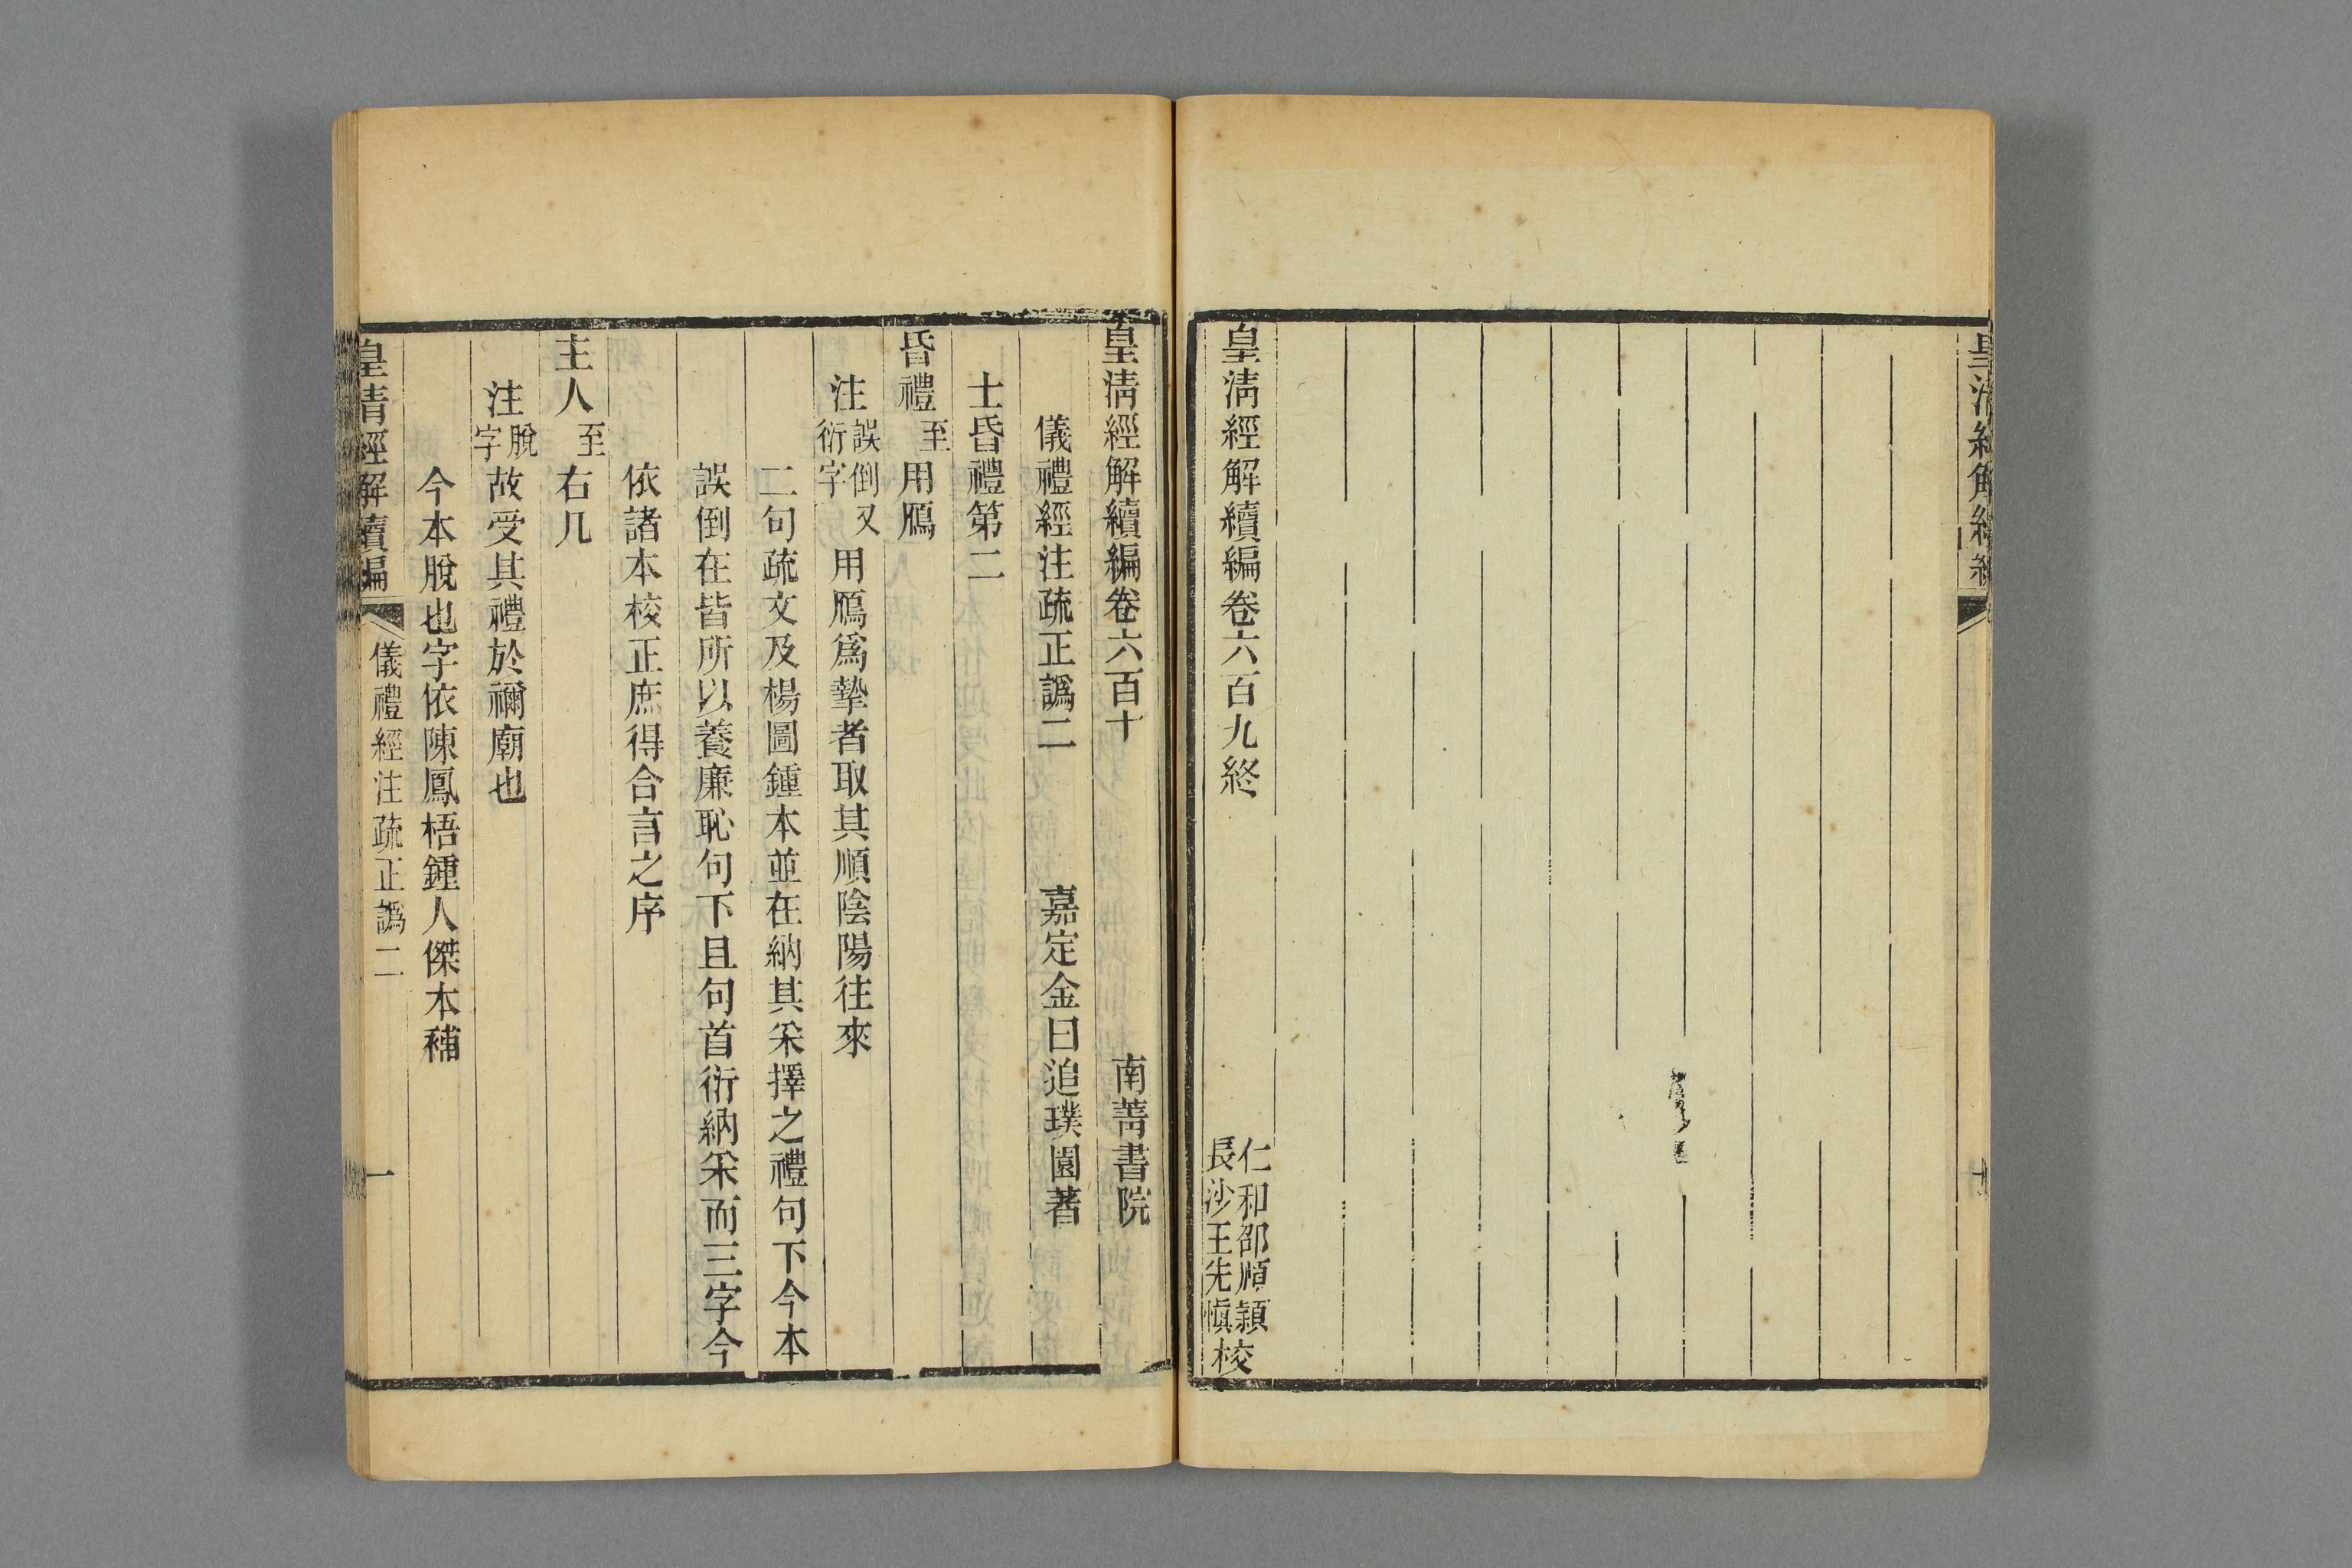 皇清經解續編
皇清經解續編卷六百九終
仁和邵順穎
長沙王先愼
校
皇清經解續編卷六百十
南菁書院
儀禮經注疏正譌二
嘉定金曰追璞園著
士昏禮第二
昏禮至用鴈
注誤倒又衍字用鴈爲摯者取其順陰陽往來
二句疏文及楊圖鍾本並在納其采擇之禮句下今本
誤倒在皆所以養廉恥句下且句首衍納采而三字今
依諸本校正庶得合言之序
主人至右几
注脫字故受其禮於禰廟也
今本脫也字依陳鳳梧鍾人傑本補
皇清經解續編
儀禮經注疏正譌二
一